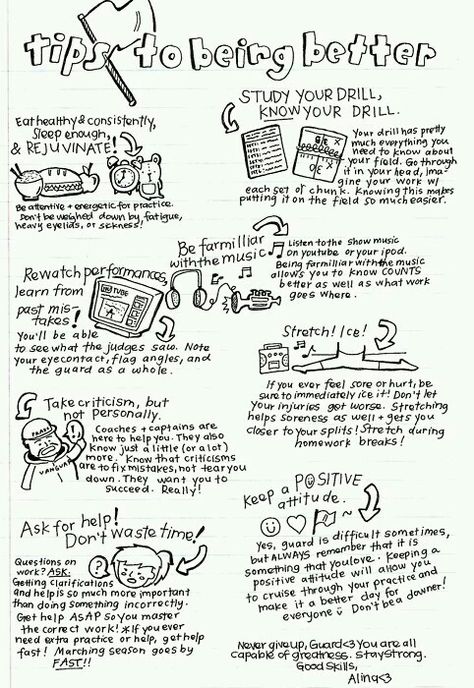 tips to being better
Eat healthy & consistently,
Sleep enough,
& REJUVINATE!
Be attentive + energetic for practice.
Don't be weighed down by fatigue,
heavy eyelids, or sickness!
STUDY YOUR DRILL,
KNOW YOUR DRILL.
Your drill has pretty
much everything you
need to know about
your field. Go through
it in your head, Ima-
gine your work w/
each set of chunk. Knowing this makes
putting it on the field so much easier.
Be farmilliar
with the music
Listen to the show music
on youtube or your ipod.
Being farmilliar with the music
allows you to know COUNTS
better as well as what work
goes where.
Rewatch performances,
learn from
past mis-
takes!
TUBE
You'll be able
to see what the judges saw. Note
your eyecontact, flag angles, and
the guard as a whole.
Stretch! Ice!
If you ever feel sore or hurt, be
sure to immediately ice it! Don't let
your injuries get worse. Stretching
helps soreness as well + gets you
closer to your splits! Stretch during
homework breaks!
Take criticism, but
not personally.
VANGUARD
Coaches + captains are
here to help you. They also
know just a little (or a lot)
more. Know that criticisms
are to fix mistakes, not tear you
down. They want you to
succeed. Really!
Keep a POSITIVE
attitude.
Yes, guard is difficult sometimes,
but ALWAYS remember that it is
something that you love. Keeping a
positive attitude will allow you
to cruise through your practice and
make it a better day for
everyone Don't be a downer!
Ask for help!
Don't waste time!
Questions on
work? ASK.
Getting clarifications
and help is so much more important
than doing something incorrectly.
Get help ASAP so you master
the correct work! *If you ever
need extra practice or help, get help
fast! Marching season goes by
FAST!!
Never give up, Guard<3 You are all
capable of greatness. Stay strong.
Good Skills,
Alina<3